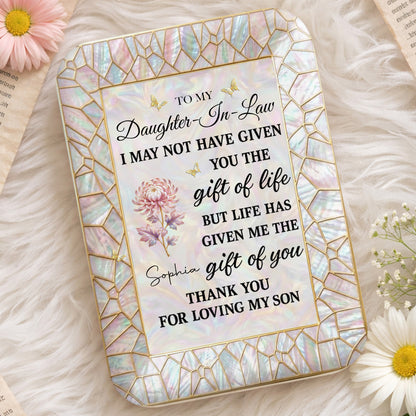 TO MY
Daughter-In-Law
I MAY NOT HAVE GIVEN
YOU THE
gift of life
BUT LIFE HAS
GIVEN ME THE
Sophia gift of you
THANK YOU
FOR LOVING MY SON